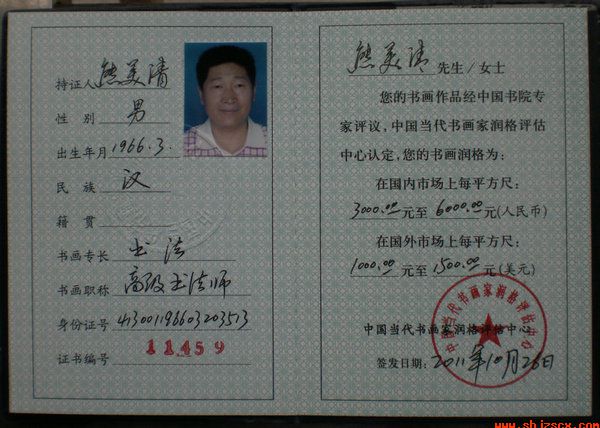 持证人 熊美清
性 别 男
出生年月 1966.3.
民 族 汉
籍 贯
书画专长 书法
书画职称 高级书法师
身份证号 413001196603203513
证书编号 11459
熊美清 先生/女士
您的书画作品经中国书院专
家评议,中国当代书画家润格评估
中心认定,您的书画润格为:
在国内市场上每平方尺:
3000.00元至 6000.00元(人民币)
在国外市场上每平方尺:
1000.00元至 1500.00元(美元)
中国当代书画家润格评估中心
签发日期: 2011年10月26日
中国当代书画家润格评估中心
www.shjzscx.com